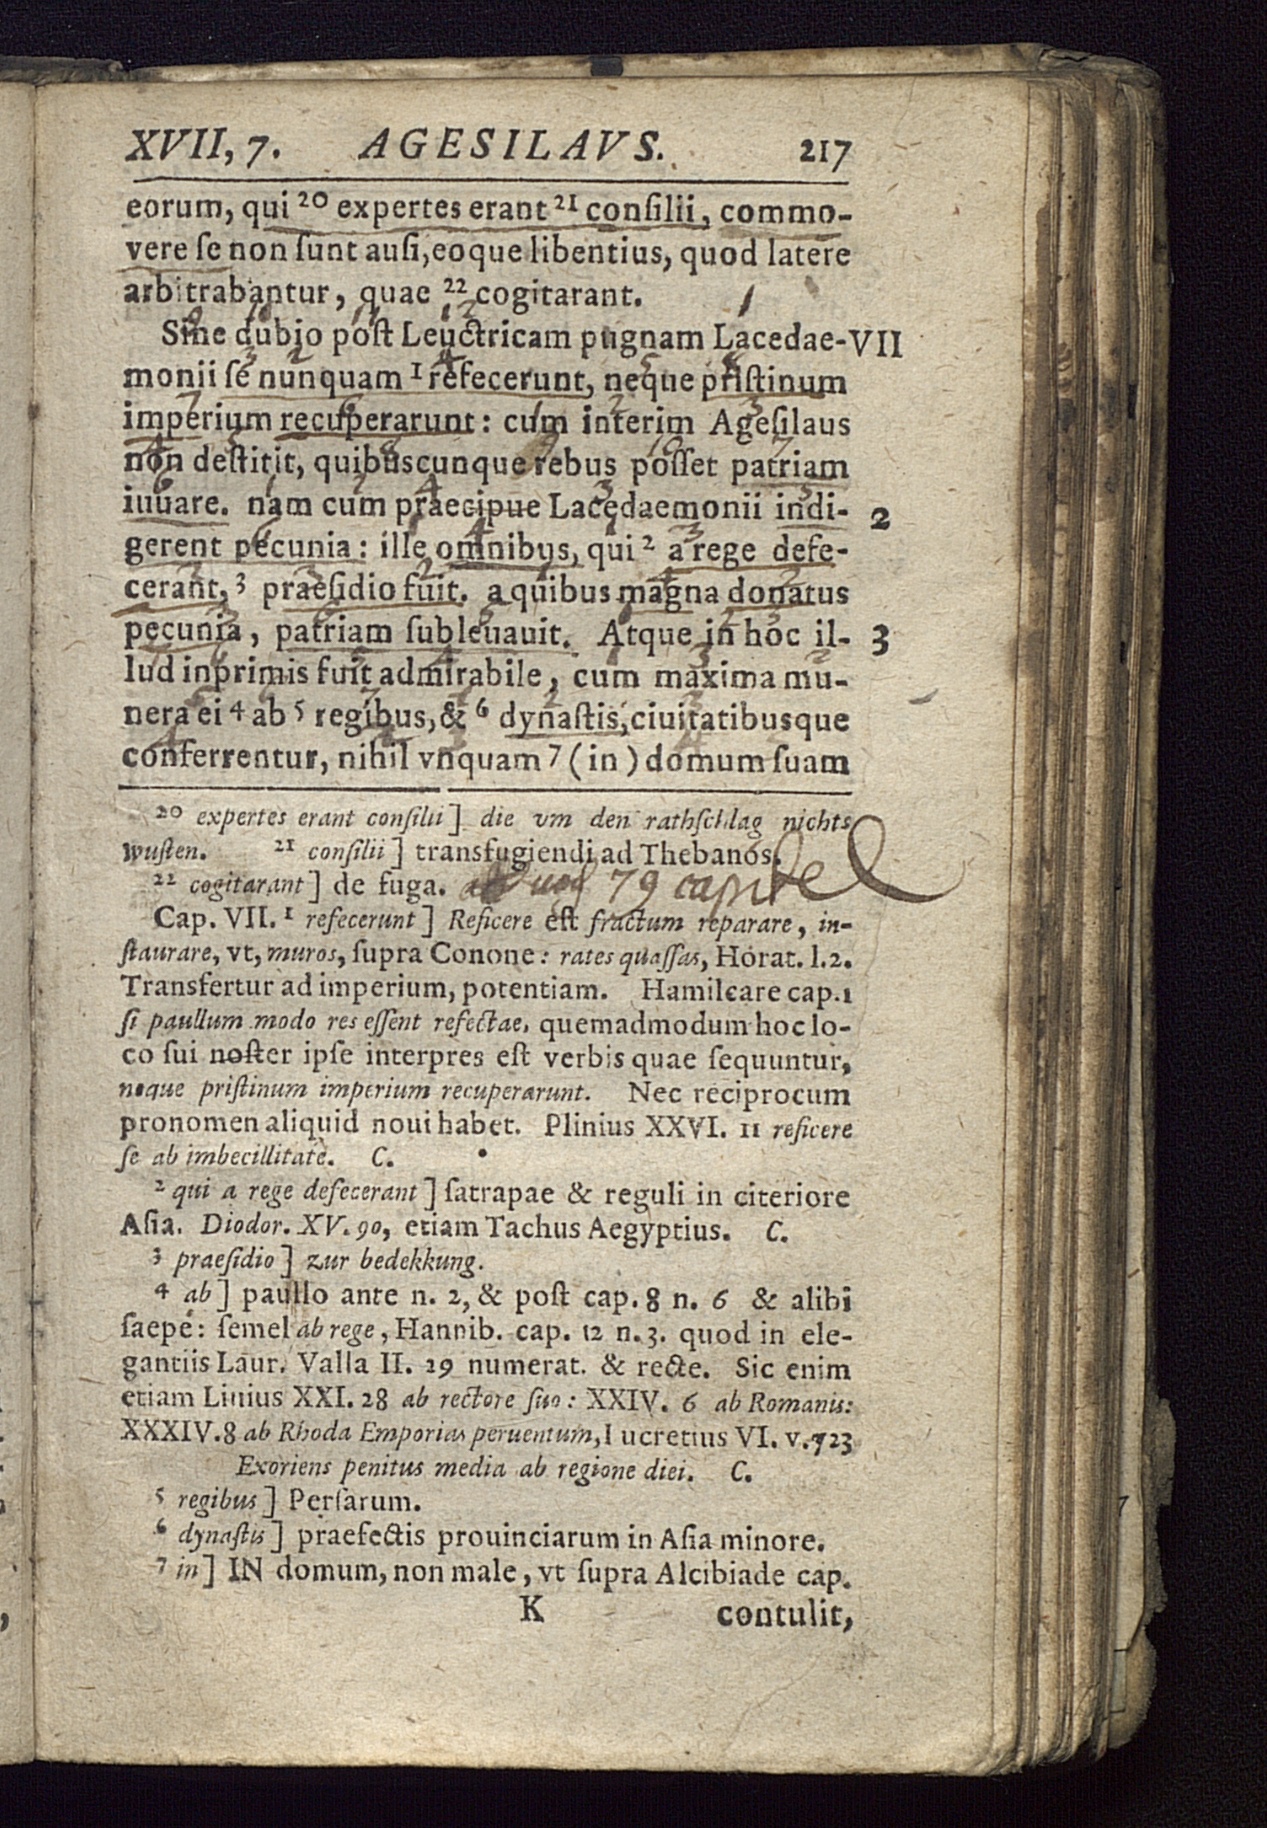 XVII, 7. AGESILAVS. 217
eorum, qui ²⁰ expertes erant ²¹ conſilii, commo-
vere ſe non ſunt auſi, eoque libentius, quod latere
arbitrabantur, quae ²² cogitarant.
Sine dubio poſt Leuctricam pugnam Lacedae- VII
monii ſe nunquam ¹ refecerunt, neque priſtinum
imperium recuperarunt: cum interim Ageſilaus
non deſtitit, quibuscunque rebus poſſet patriam
iuuare. nam cum praecipue Lacedaemonii indi- 2
gerent pecunia: ille omnibus, qui ² a rege defe-
cerant, ³ praeſidio fuit. a quibus magna donatus
pecunia, patriam ſubleuauit. Atque in hoc il- 3
lud inprimis fuit admirabile, cum maxima mu-
nera ei ⁴ ab ⁵ regibus, & ⁶ dynaſtis, ciuitatibusque
conferrentur, nihil vnquam ⁷ (in) domum ſuam
²⁰ expertes erant conſilii] die vm den rathſchlag nichts
wuſten. ²¹ conſilii] transfugiendi ad Thebanos.
²² cogitarant] de fuga. 79 capitel
Cap. VII. ¹ refecerunt] Reficere eſt fractum reparare, in-
ſtaurare, vt, muros, ſupra Conone: rates quaſſas, Horat. l.2.
Transfertur ad imperium, potentiam. Hamilcare cap.1
ſi paullum modo res eſſent refectae, quemadmodum hoc lo-
co ſui noſter ipſe interpres eſt verbis quae ſequuntur,
neque priſtinum imperium recuperarunt. Nec reciprocum
pronomen aliquid noui habet. Plinius XXVI. 11 reficere
ſe ab imbecillitate. C.
² qui a rege defecerant] ſatrapae & reguli in citeriore
Aſia. Diodor. XV. 90, etiam Tachus Aegyptius. C.
³ praeſidio] zur bedekkung.
⁴ ab] paullo ante n. 2, & poſt cap. 8 n. 6 & alibi
ſaepe: ſemel ab rege, Hannib. cap. 12 n. 3. quod in ele-
gantiis Laur. Valla II. 29 numerat. & recte. Sic enim
etiam Liuius XXI. 28 ab rectore ſuo: XXIV. 6 ab Romanis:
XXXIV. 8 ab Rhoda Emporias peruentum, Lucretius VI. v. 723
Exoriens penitus media ab regione diei. C.
⁵ regibus] Perſarum.
⁶ dynaſtis] praefectis prouinciarum in Aſia minore.
⁷ in] IN domum, non male, vt ſupra Alcibiade cap.
K contulit,